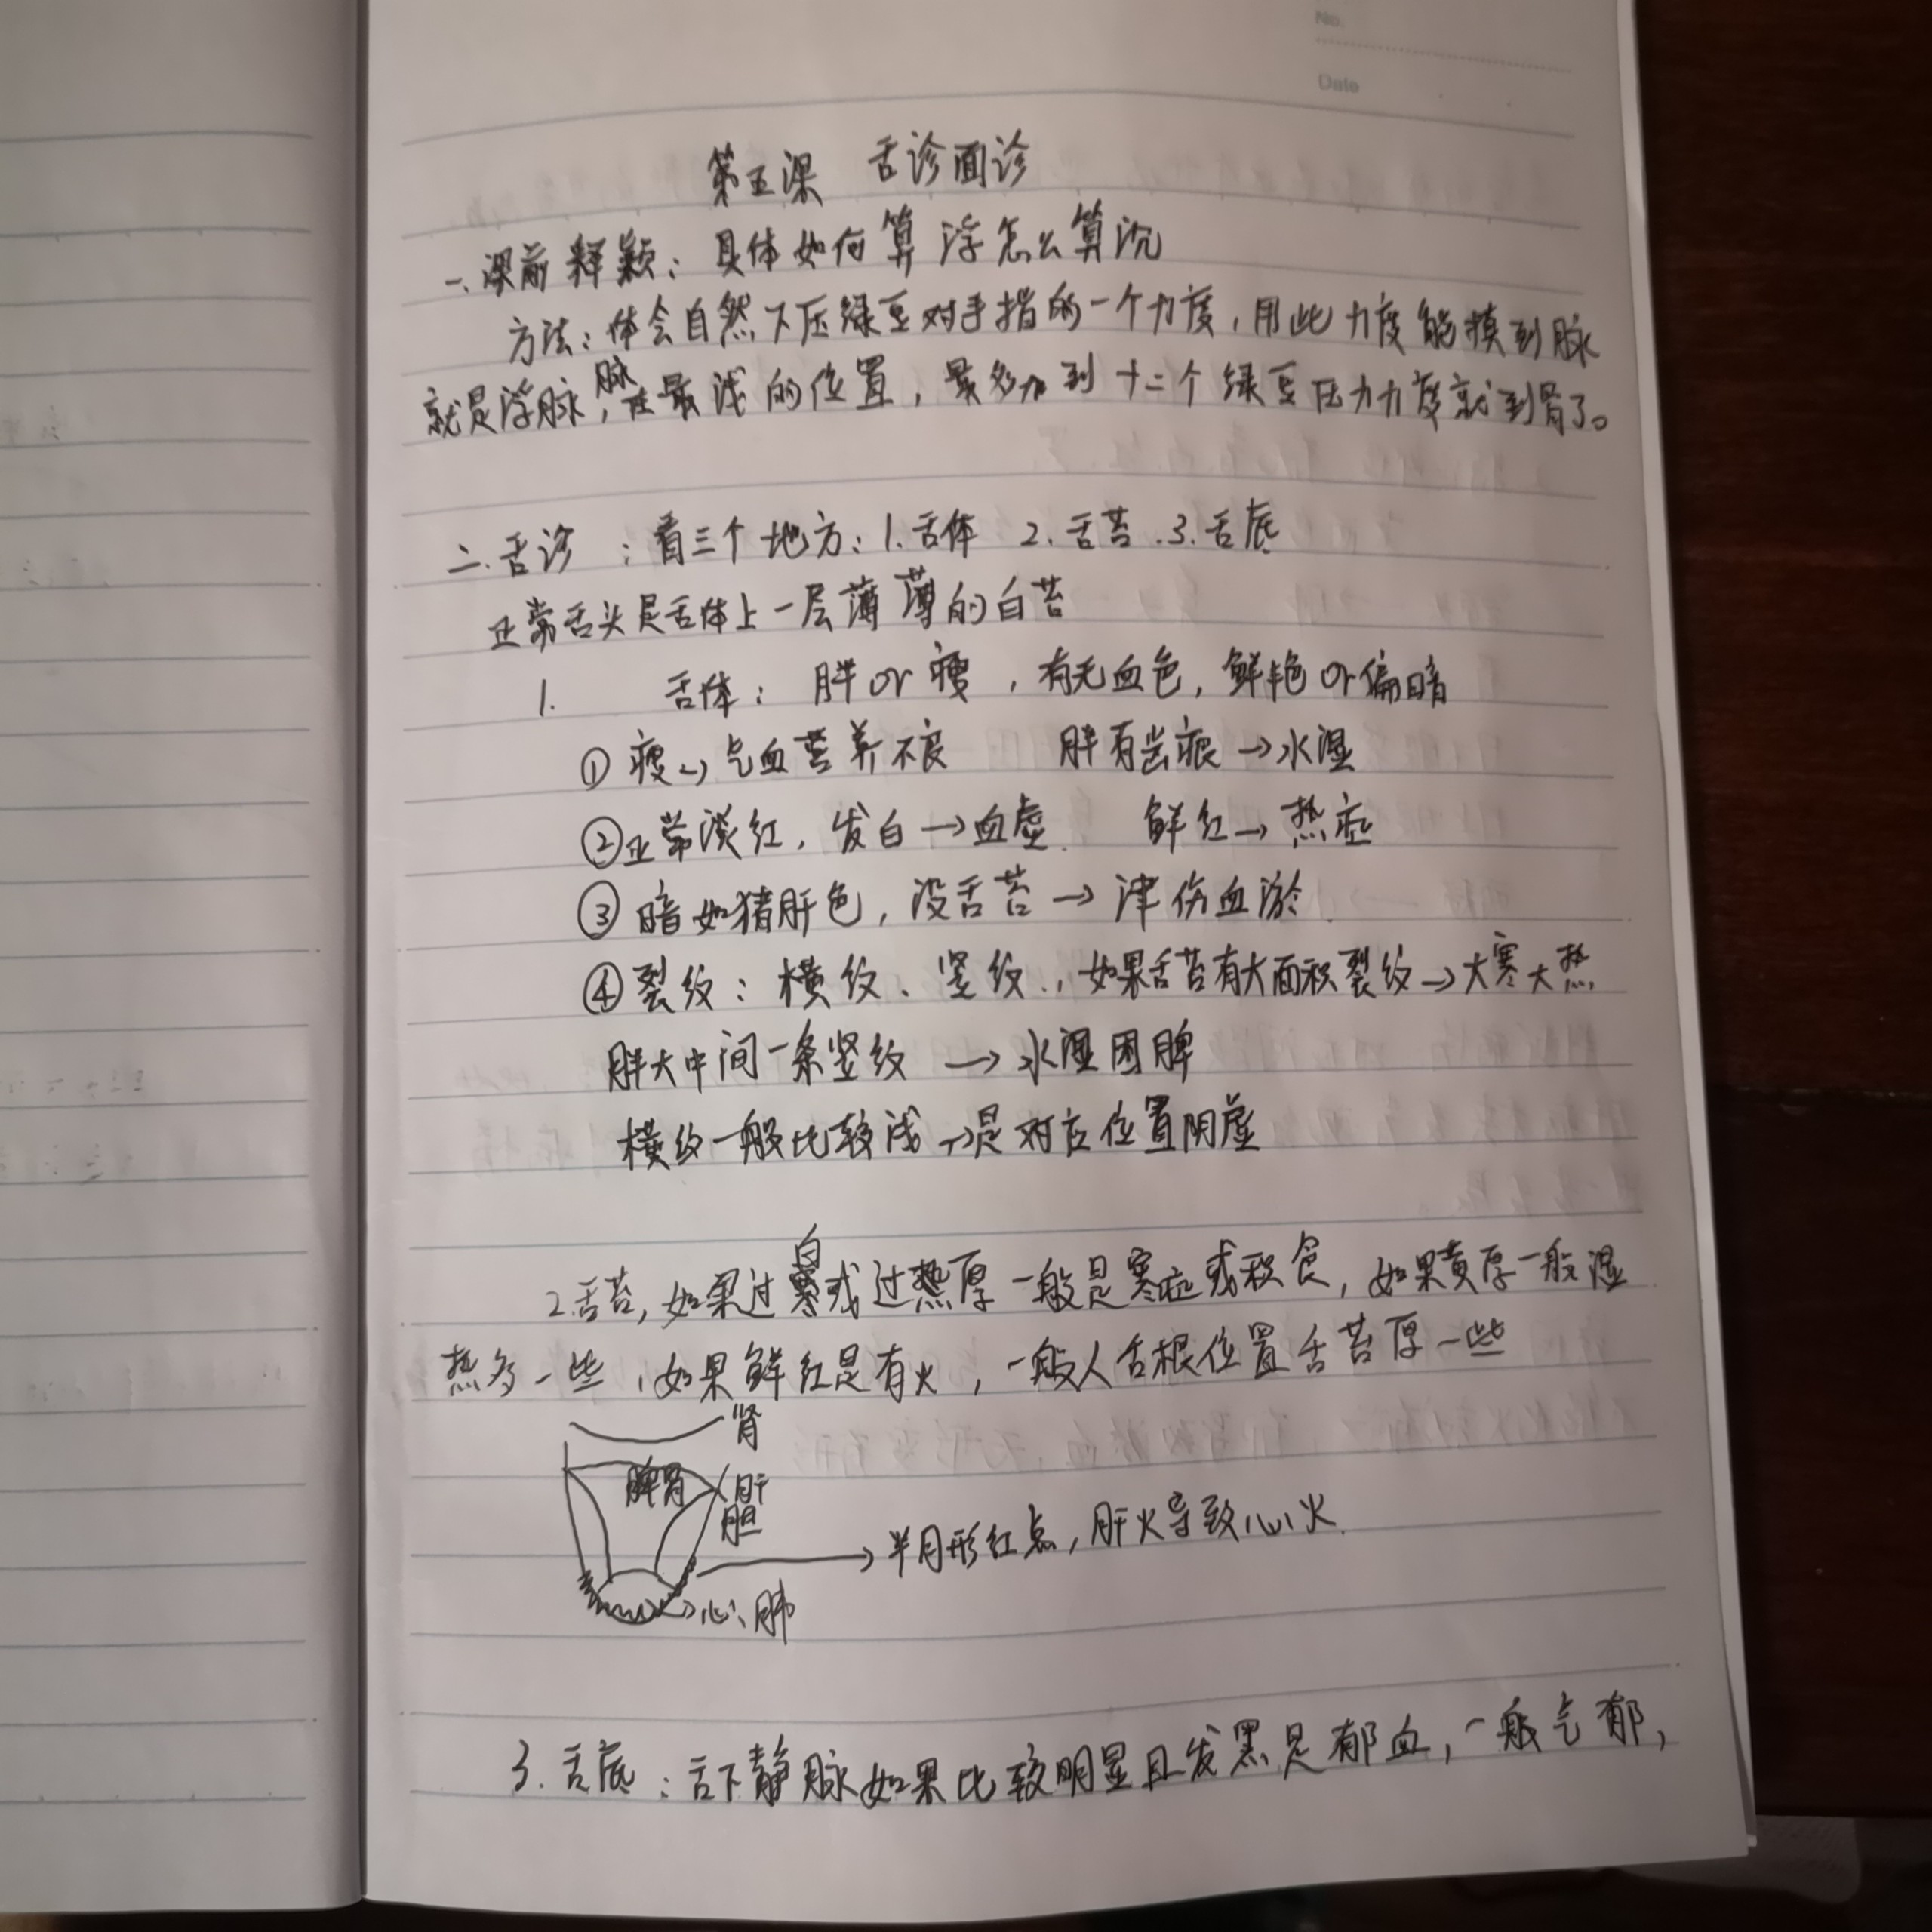 No.
Date
第五课 舌诊面诊
一、课前释疑：具体如何算浮怎么算沉
方法：体会自然下压绿豆对手指的一个力度，用此力度能摸到脉
就是浮脉，脉在最浅的位置，最多加到十二个绿豆压力力度就到肾了。
二.舌诊：看三个地方：1.舌体 2.舌苔.3.舌底
正常舌头是舌体上一层薄薄的白苔
1. 舌体：胖or瘦，有无血色，鲜艳or偏暗
①瘦→气血营养不良 胖有齿痕→水湿
②正常淡红，发白→血虚. 鲜红→热症
③暗如猪肝色，没舌苔→津伤血淤.
④裂纹：横纹、竖纹.，如果舌苔有大面积裂纹→大寒大热
胖大中间一条竖纹→水湿困脾
横纹一般比较浅→是对应位置阴虚
2.舌苔，如果过白或过厚一般是寒症或积食，如果黄厚一般湿
热多一些，如果鲜红是有火，一般人舌根位置舌苔厚一些
肾
脾胃
肝
胆
→半月形红点，肝火导致心火.
→心、肺
3.舌底：舌下静脉如果比较明显且发黑是郁血，一般气郁，